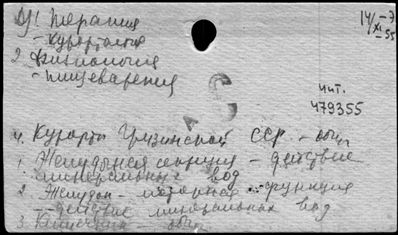 Терапия
- Курорты
14/XI-55
2 Физиология
- пищеварения
чит.
479355
4. Курорты Грузинской ССР -
1. Желудочная секреция - действие
минеральных вод
2. Желудок - моторная функция
- действие минеральных вод
3. Кишечник -